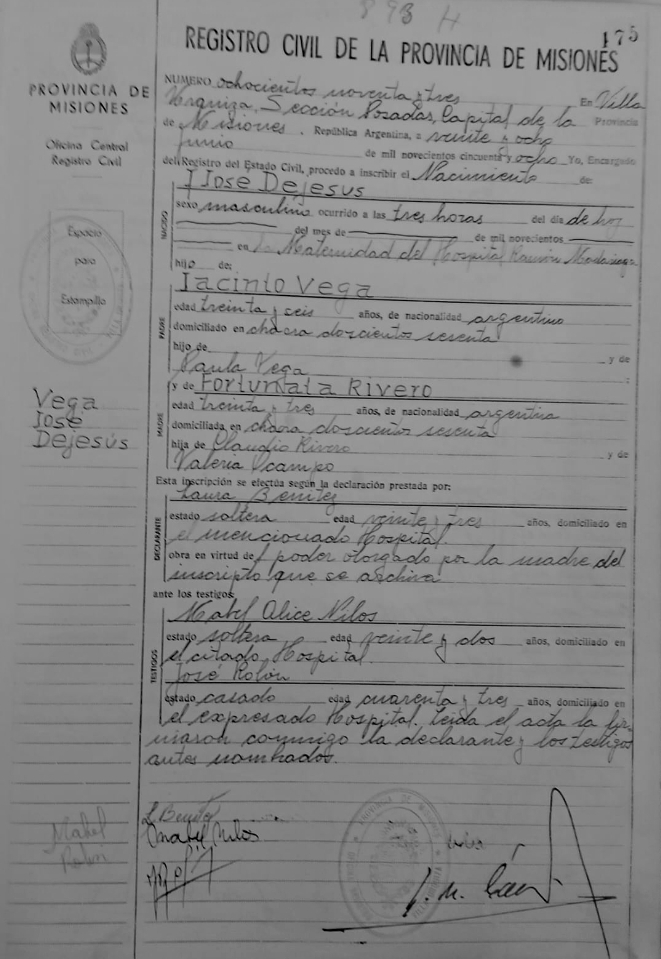 893 H
175
REGISTRO CIVIL DE LA PROVINCIA DE MISIONES
PROVINCIA DE
MISIONES
Oficina Central
Registro Civil
Espacio
para
Estampilla
Vega
José
Dejesús
NUMERO ochocientos noventa y tres En Villa
Urquiza, Sección Posadas, Capital de la Provincia
de Misiones, República Argentina, a veinte y ocho
junio de mil novecientos cincuenta y ocho Yo, Encargado
del Registro del Estado Civil, procedo a inscribir el Nacimiento de:
José Dejesus
NACIDO
sexo masculino ocurrido a las tres horas del día de hoy
del mes de de mil novecientos
en la Maternidad del Hospital Ramón Madariaga
hijo de:
Jacinto Vega
PADRE
edad treinta y seis años, de nacionalidad argentino
domiciliado en chacra doscientos sesenta
hijo de y de
Paula Vega
y de Fortunata Rivero
MADRE
edad treinta y tres años, de nacionalidad argentina
domiciliada en chacra doscientos sesenta
hija de Claudio Rivero y de
Valeria Ocampo
Esta inscripción se efectúa según la declaración prestada por:
Laura Benitez
DECLARANTE
estado soltera edad veinte y tres años, domiciliado en
el mencionado Hospital.
obra en virtud de poder otorgado por la madre del
inscripto que se archiva
ante los testigos:
Mabel Alice Nilos
TESTIGOS
estado soltera edad veinte y dos años, domiciliado en
el citado Hospital
José Rolón
estado casado edad cuarenta y tres años, domiciliado en
el expresado Hospital. Leida el acta la fir-
maron conmigo la declarante y los testigos
antes nombrados.
L. Benitez
Mabel Nilos
Mabel
Rolón